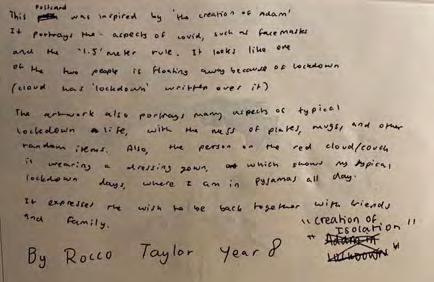 Postcard
This was inspired by 'the creation of Adam'
It portrays the aspects of covid, such as face masks
and the '1.5' meter rule. It looks like one
of the two people is floating away because of lockdown
(cloud has 'lockdown' written over it)
The artwork also portrays many aspects of typical
lockdown life, with the mess of plates, mugs, and other
random items. Also, the person on the red cloud/couch
is wearing a dressing gown, which shows my typical
lockdown days, where I am in pyjamas all day.
It expresses the wish to be back together with friends
and family.
"Creation of
Isolation"
"Adam in
Lockdown"
By Rocco Taylor Year 8